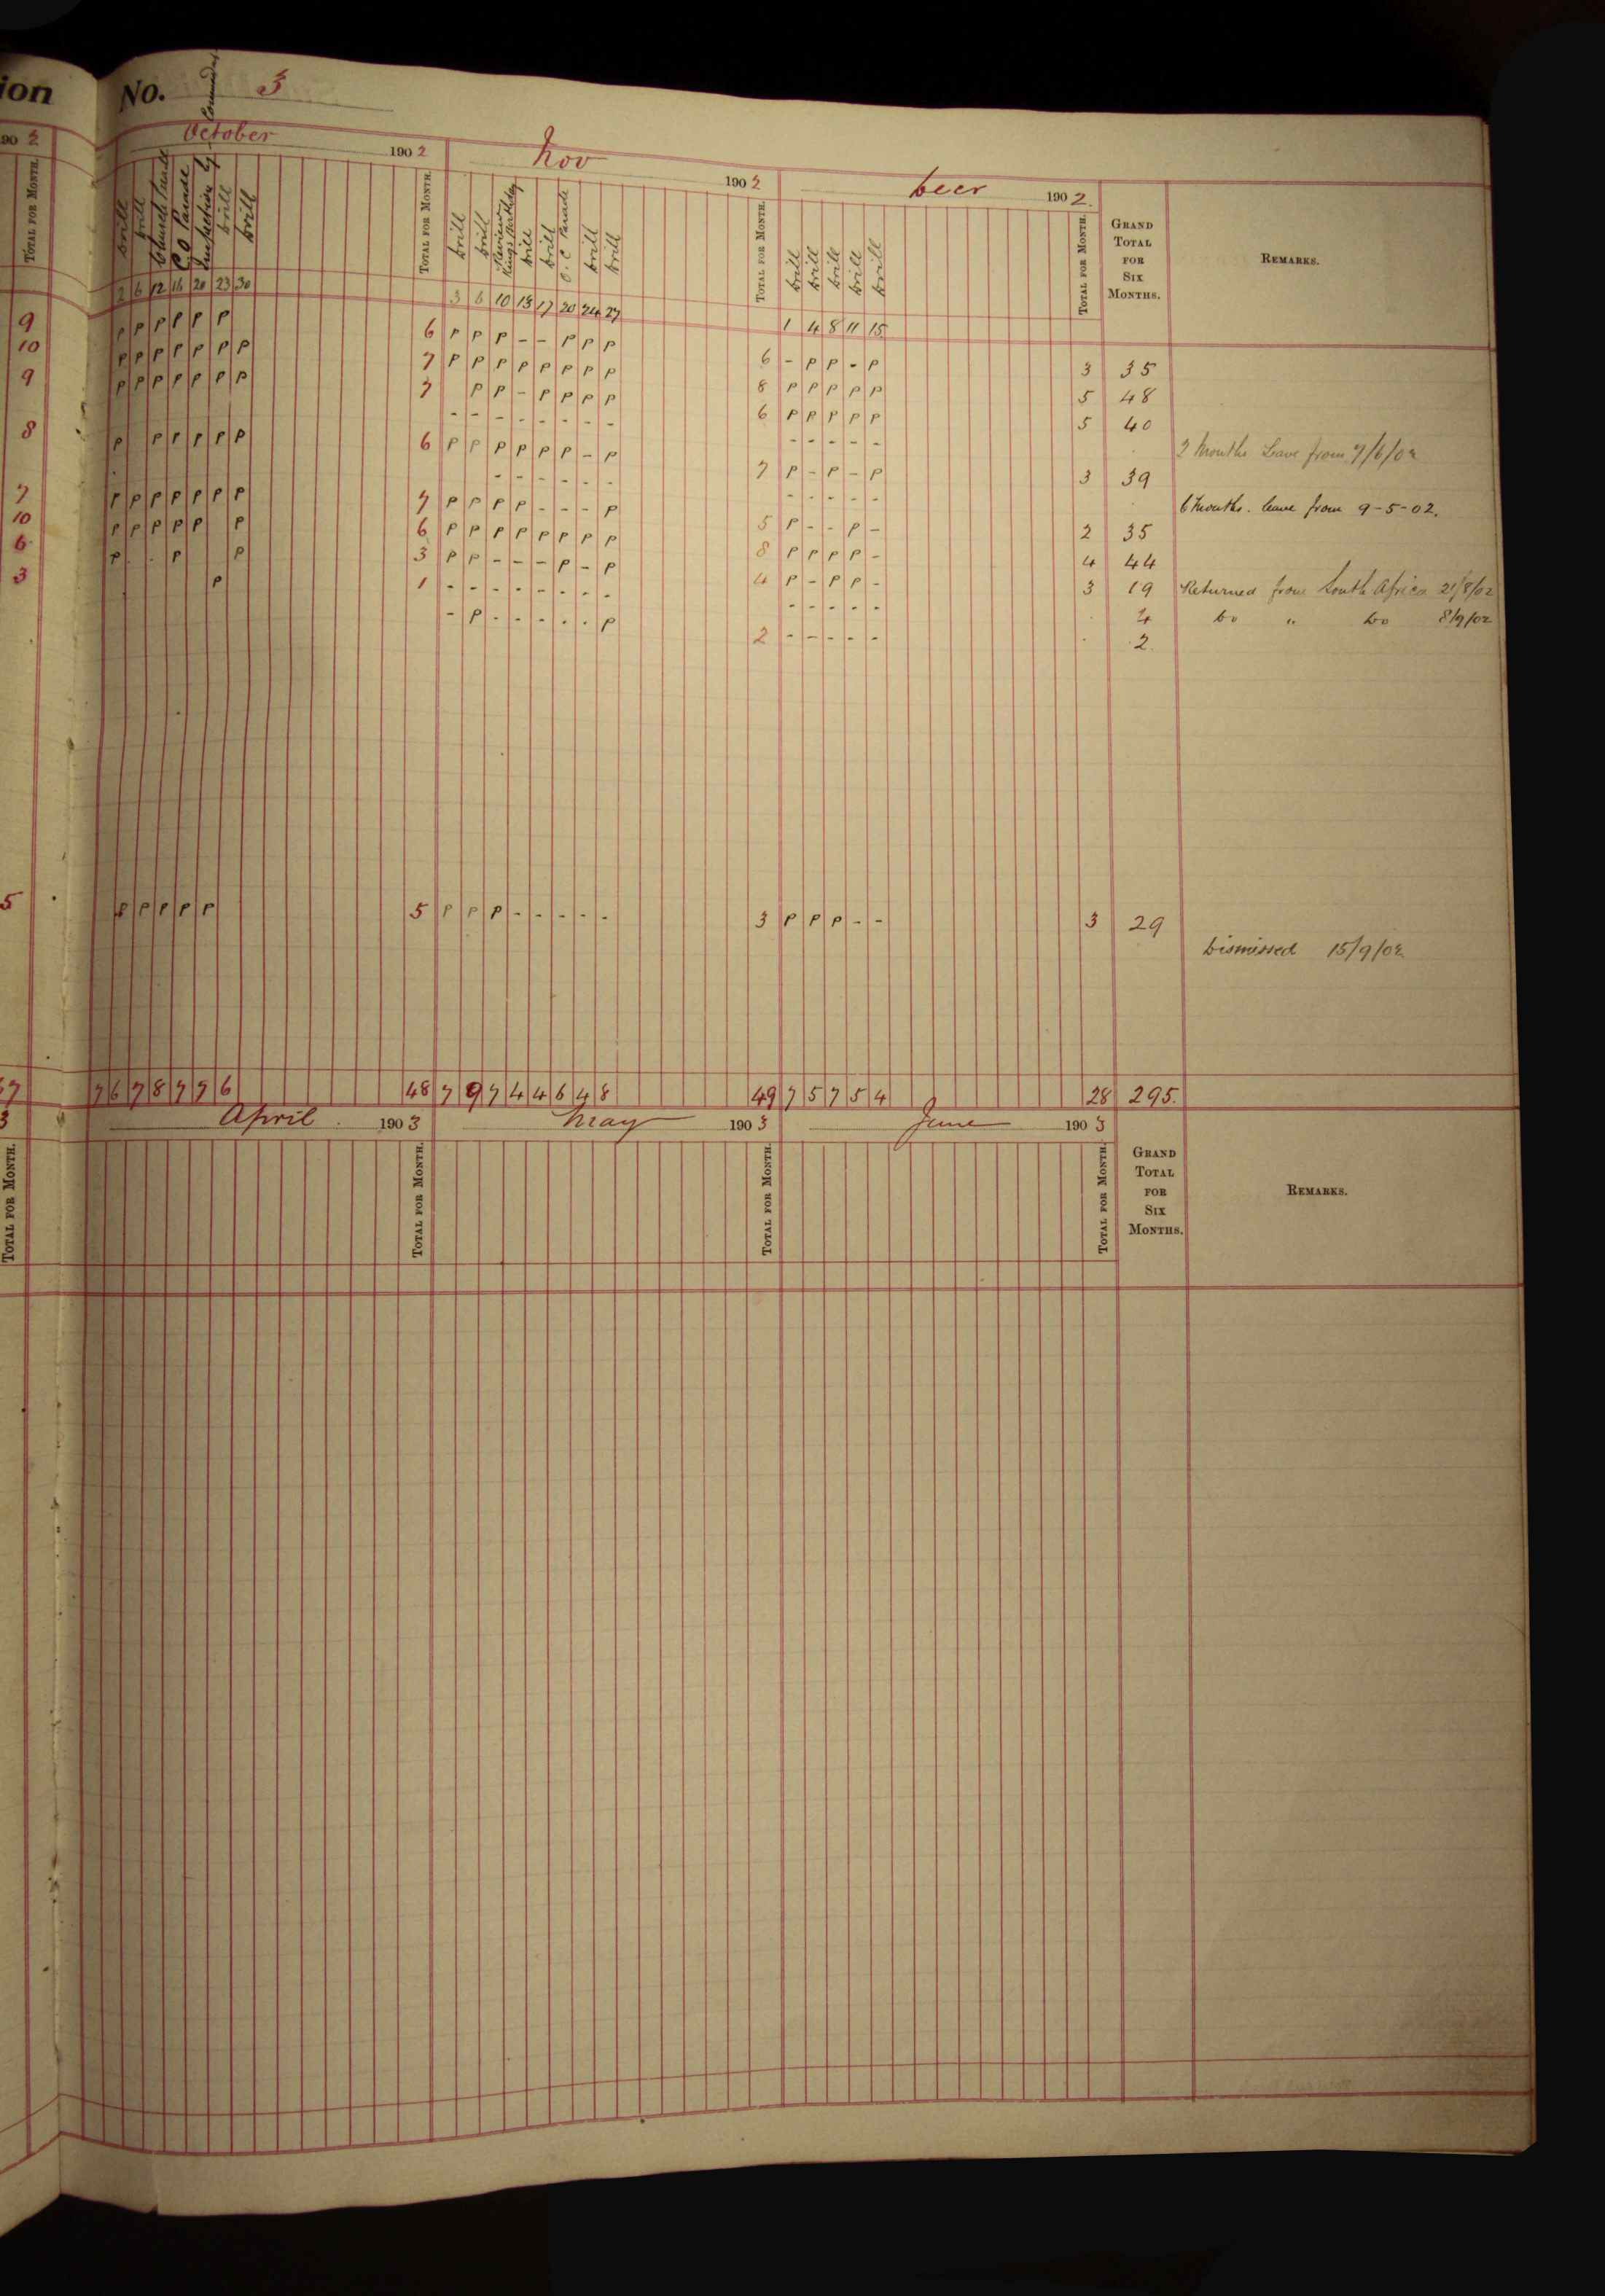 ion No. 3
90 2 October 1902 Nov 1902 Decr 1902.
TOTAL FOR MONTH. Drill Drill Church Parade C.O Parade Inspection by Commandant Drill Drill TOTAL FOR MONTH. Drill Drill Review King's Birthday Drill Drill O.C Parade Drill Drill TOTAL FOR MONTH. Drill Drill Drill Drill Drill TOTAL FOR MONTH. GRAND TOTAL FOR SIX MONTHS. REMARKS.
2 6 12 16 20 23 30 3 6 10 13 17 20 24 27 1 4 8 11 15
9 P P P P P P 6 P P P - - P P P 6 - P P - P 3 35
10 P P P P P P P 7 P P P P P P P P 8 P P P P P 5 48
9 P P P P P P P 7 P P - P P P P 6 P P P P P 5 40
- - - - - - - - - - - - - 3 Months Leave from 7/6/02
8 P P P P P P 6 P P P P P P - P 7 P - P - P 3 39
- - - - - - - - - - - 6 Months. leave from 9-5-02.
7 P P P P P P P 7 P P P P - - - P 5 P - - P - 2 35
10 P P P P P P 6 P P P P P P P P 8 P P P P - 4 44
6 P P P 3 P P - - - P - P 4 P - P P - 3 19 Returned from South Africa 21/8/02
3 P 1 - - - - - - - - - - - - - 4 Do " Do 8/9/02
- P - - - - - P 2 - - - - - 2
5 P P P P P 5 P P P - - - - - 3 P P P - - 3 29
Dismissed 15/9/02
7 6 7 8 7 7 6 48 7 9 7 4 4 6 4 8 49 7 5 7 5 4 28 295.
3 April 1903 May 1903 June 1903
TOTAL FOR MONTH. TOTAL FOR MONTH. TOTAL FOR MONTH. TOTAL FOR MONTH. GRAND TOTAL FOR SIX MONTHS. REMARKS.